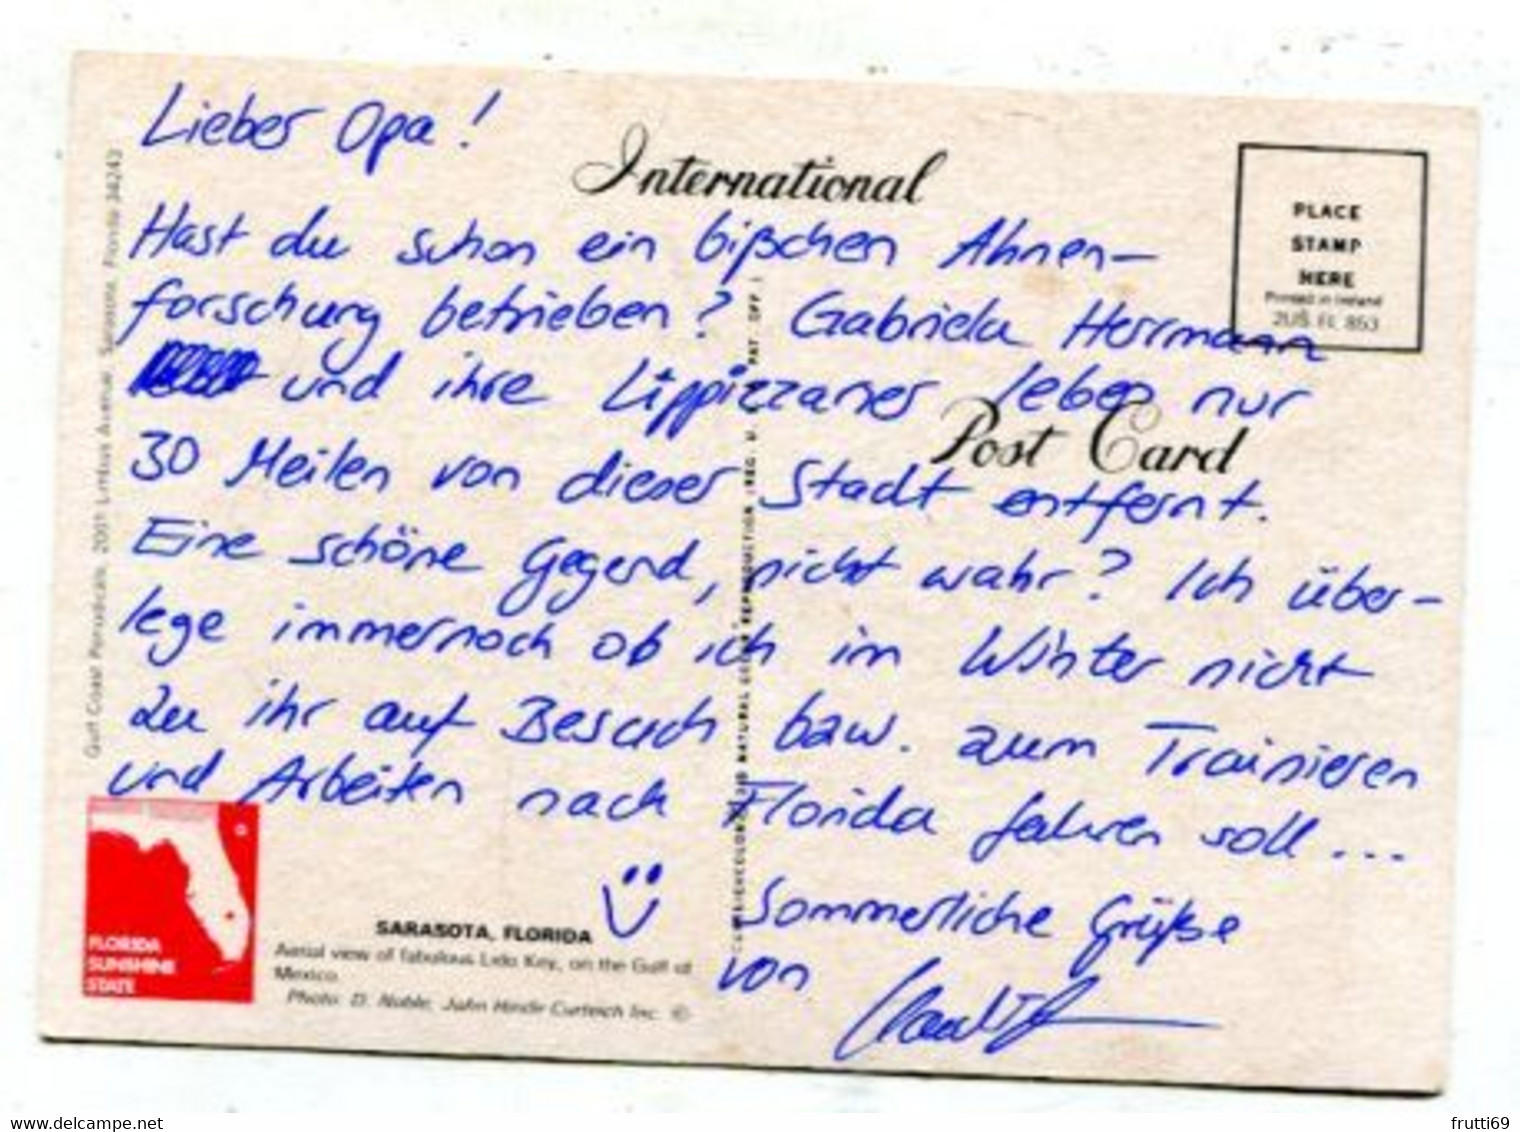 Lieber Opa!
International
PLACE
STAMP
HERE
Printed in Ireland
2US FL 853
Hast du schon ein bißchen Ahnen-
forschung betrieben? Gabriela Herrmann
und ihre Lippizzaner leben nur
Post Card
30 Meilen von dieser Stadt entfernt.
Eine schöne Gegend, nicht wahr? Ich über-
lege immernoch ob ich im Winter nicht
zu ihr auf Besuch bzw. zum Trainieren
und Arbeiten nach Florida fahren soll...
Sommerliche Grüße
von
FLORIDA
SUNSHINE
STATE
SARASOTA, FLORIDA
Aerial view of fabulous Lido Key, on the Gulf of
Mexico.
Photo: D. Noble, John Hinde Curteich Inc. ©
Avenue, Sarasota, Florida 34243
NATURAL COLOR REPRODUCTION (REG. U. PAT. OFF.)
frutti69